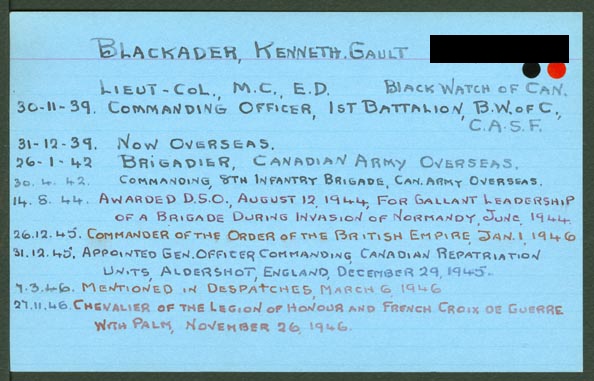 BLACKADER, KENNETH. GAULT
LIEUT-COL., M.C., E.D. BLACK WATCH OF CAN.
30-11-39. COMMANDING OFFICER, 1ST BATTALION, B.W. OF C.,
C.A.S.F.
31-12-39. NOW OVERSEAS.
26-1-42 BRIGADIER, CANADIAN ARMY OVERSEAS.
30.4.42. COMMANDING, 8TH INFANTRY BRIGADE, CAN. ARMY OVERSEAS.
14.8.44. AWARDED D.S.O., AUGUST 12, 1944, FOR GALLANT LEADERSHIP
OF A BRIGADE DURING INVASION OF NORMANDY, JUNE, 1944.
26.12.45. COMMANDER OF THE ORDER OF THE BRITISH EMPIRE, JAN. 1, 1946
31.12.45. APPOINTED GEN. OFFICER COMMANDING, CANADIAN REPATRIATION
UNITS, ALDERSHOT, ENGLAND, DECEMBER 29, 1945.
9.3.46. MENTIONED IN DESPATCHES, MARCH 6, 1946
27.11.46. CHEVALIER OF THE LEGION OF HONOUR AND FRENCH CROIX DE GUERRE
WITH PALM, NOVEMBER 26, 1946.